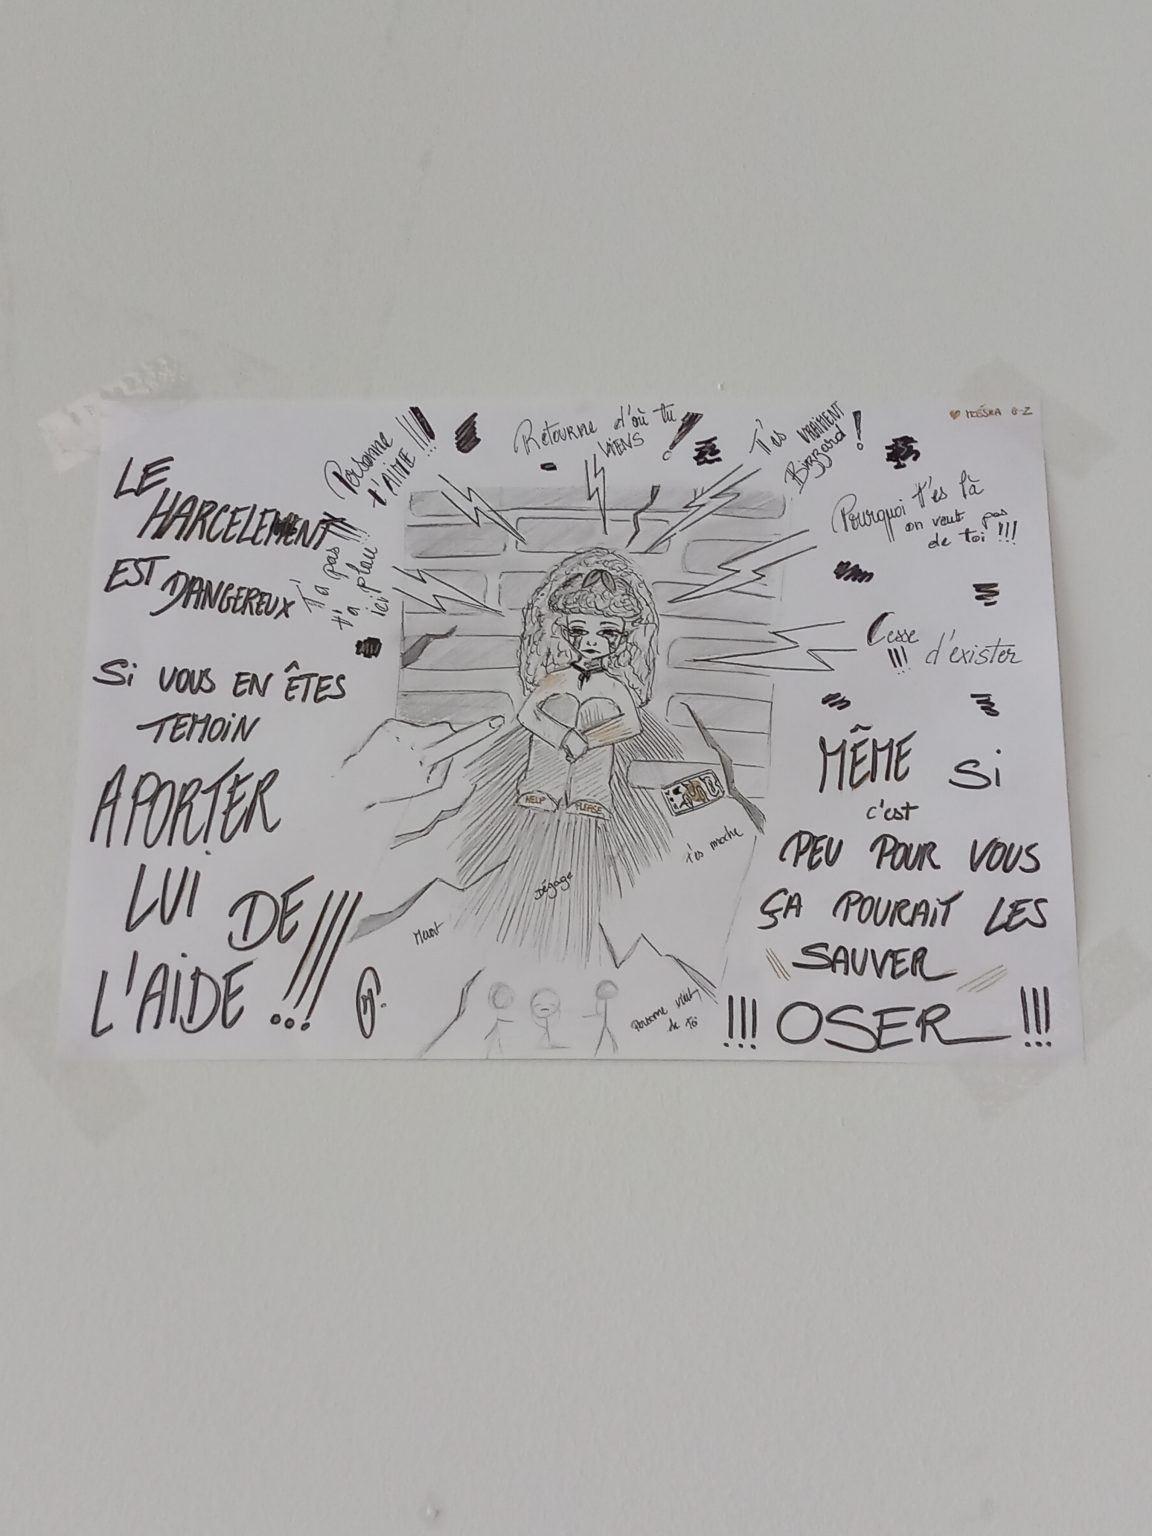 LE
HARCELEMENT
EST DANGEREUX
Si VOUS EN ÊTES
TEMOIN
APORTER
LUI DE
L'AiDE !!!
Personne
t'AIME !!!
T'a pas !!!
t'a place
ici
Retourne d'où tu
VIENS !
T'es VRAIMENT
Bizzard !
MOESHA G-Z
Pourquoi t'es là
on veut pas
de toi !!!
Cesse d'exister
!!!
HELP PLEASE
t'es moche
Dégage
Meurt
Personne veut
de toi
MÊME Si
c'est
PEU POUR VOUS
ÇA POURAIT LES
SAUVER
!!! OSER !!!